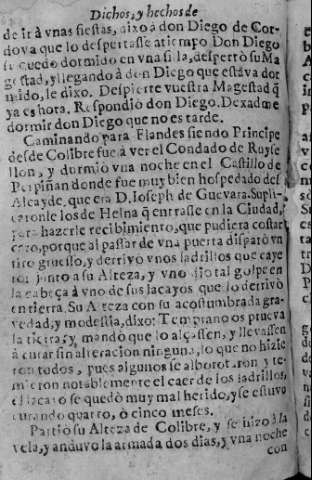 Dichos, y hechos de
de ir à vnas fiestas, dixo à don Diego de Cor-
dova que lo despertasse atiempo Don Diego
se quedo dormido en vna silla, despertò su Ma
gestad, y llegando à don Diego que estáva dor
mido, le dixo. Despierte vuestra Magestad q̃
ya es hora. Respondiò don Diego. Dexadme
dormir don Diego que no es tarde.
Caminando para Flandes siendo Principe
desde Colibre fue à ver el Condado de Ruyse
llon, y durmiò vna noche en el Castillo de
Perpiñan donde fue muy bien hospedado del
Alcayde, que era D. Ioseph de Guevara. Supli-
caronle los de Helna q̃ entrasse en la Ciudad,
para hazerle recibimiento, que pudiera costar
caro, porque al passar de vna puerta disparò vn
tiro gruesso, y derrivo vnos ladrillos que caye
ron junto a su Alteza, y vno dio tal golpe en
la cabeça à vno de sus lacayos que lo derrivò
en tierra. Su Alteza con su acostumbrada gra-
vedad, y modestia, dixo: Temprano os prueva
la tierra, y mandò que lo alçassen, y llevassen
à curar sin alteracion ninguna, lo que no hizie
ron todos, pues algunos se alborotaron y te-
mieron notablemente el caer de los ladrillos,
el lacayo se quedò muy mal herido, y se estuvo
curando quatro, ò cinco meses.
Partiò su Alteza de Colibre, y se hizo à la
vela, y anduvo la armada dos dias, y vna noche
con